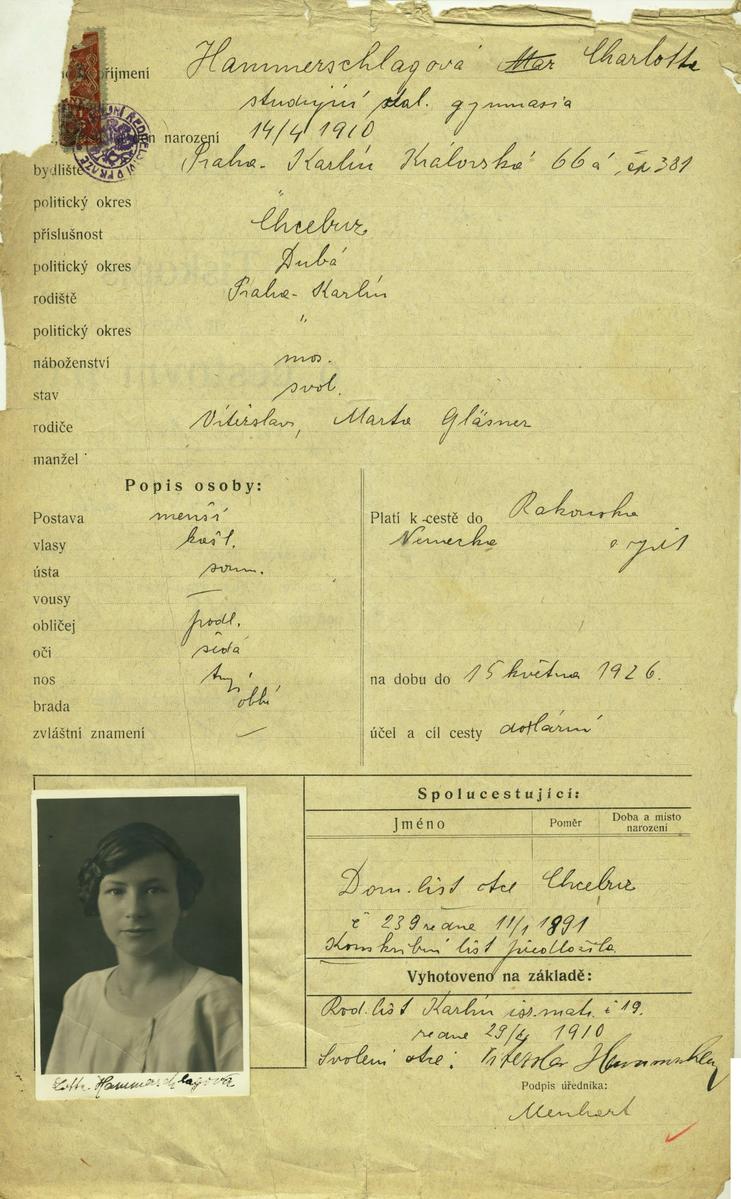 příjmení Hammerschlagová Mar Charlotte
studující gymnasia
narození 14/4 1910
bydliště Praha-Karlín Královská 66á, čp 381
politický okres "
příslušnost Chcebuz
politický okres Dubá
rodiště Praha-Karlín
politický okres "
náboženství mos.
stav svob.
rodiče Vítězslav, Marta Gläsner
manžel
Popis osoby:
Postava menší
vlasy kašt.
ústa soum.
vousy —
obličej podl.
oči šedá
nos
brada obl.
zvláštní znamení —
Platí k cestě do Rakouska
Německa a zpět
na dobu do 15 května 1926.
účel a cíl cesty
Spolucestující:
Jméno Poměr Doba a místo narození
Dom. list otce Chcebuz
č 239 ze dne 11/1 1891
Konskribní list předložila
Vyhotoveno na základě:
Rod. list Karlín isr. mat. č 19.
ze dne 29/4 1910
Svolení otce: Vítězslav Hammerschlag
Podpis úředníka:
Menhart
Lotte Hammerschlagová